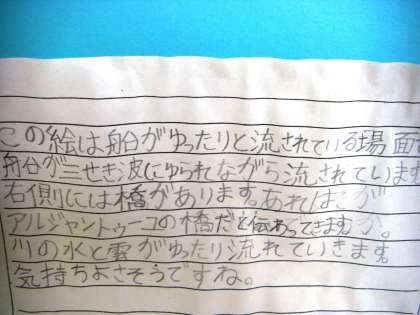 この絵は船がゆったりと流されている場面で
船が三せき波にゆられながら流されています
右側には橋があります。あればこが
アルジャントゥーユの橋だと伝わってきますか。
川の水と雲がゆったり流れていきます。
気持ちよさそうですね。